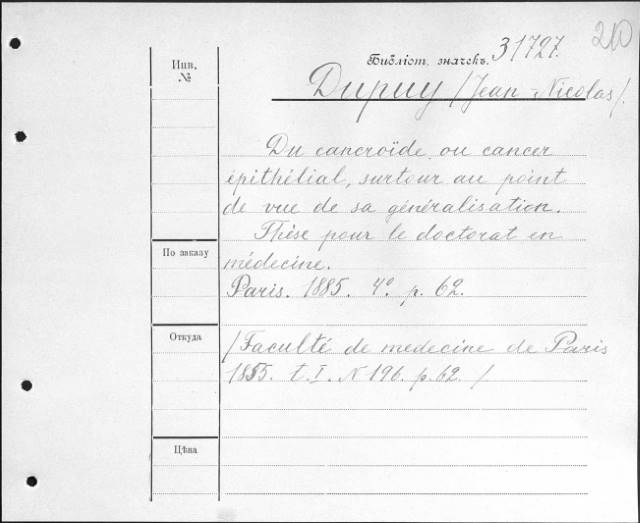 210
Библіот. значекъ. 31727.
Инв. №
Dupuy /Jean-Nicolas/.
Du cancroïde ou cancer
épithélial, surtour au point
de vue de sa généralisation.
Thèse pour le doctorat en
médecine.
По заказу
Paris. 1885. 4º. p. 62.
Откуда
/Faculté de medecine de Paris
1855. t. I. N 196. p. 62. /
Цѣна